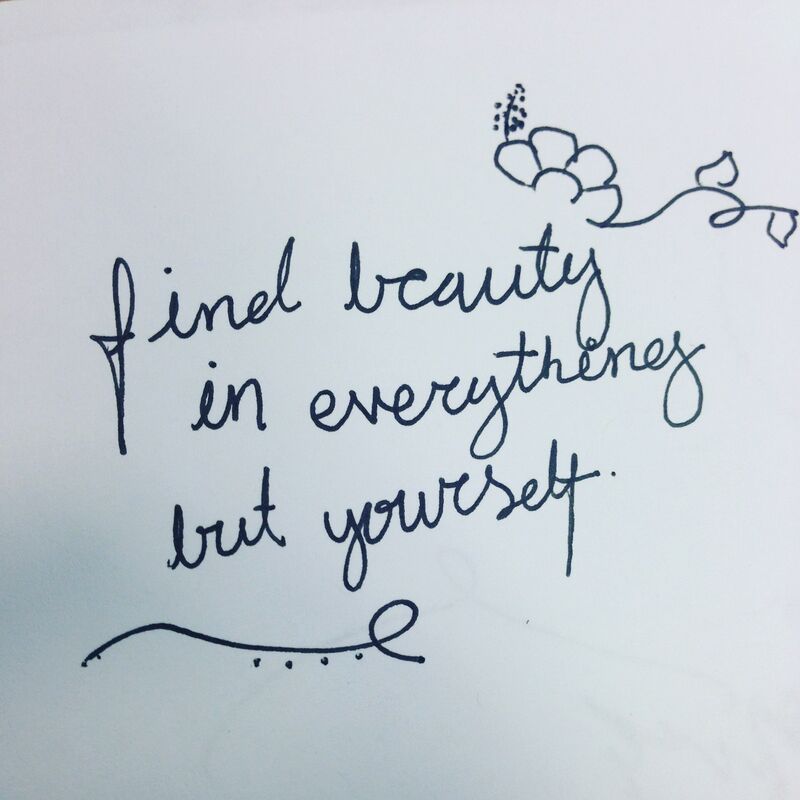 find beauty
in everything
but yourself.